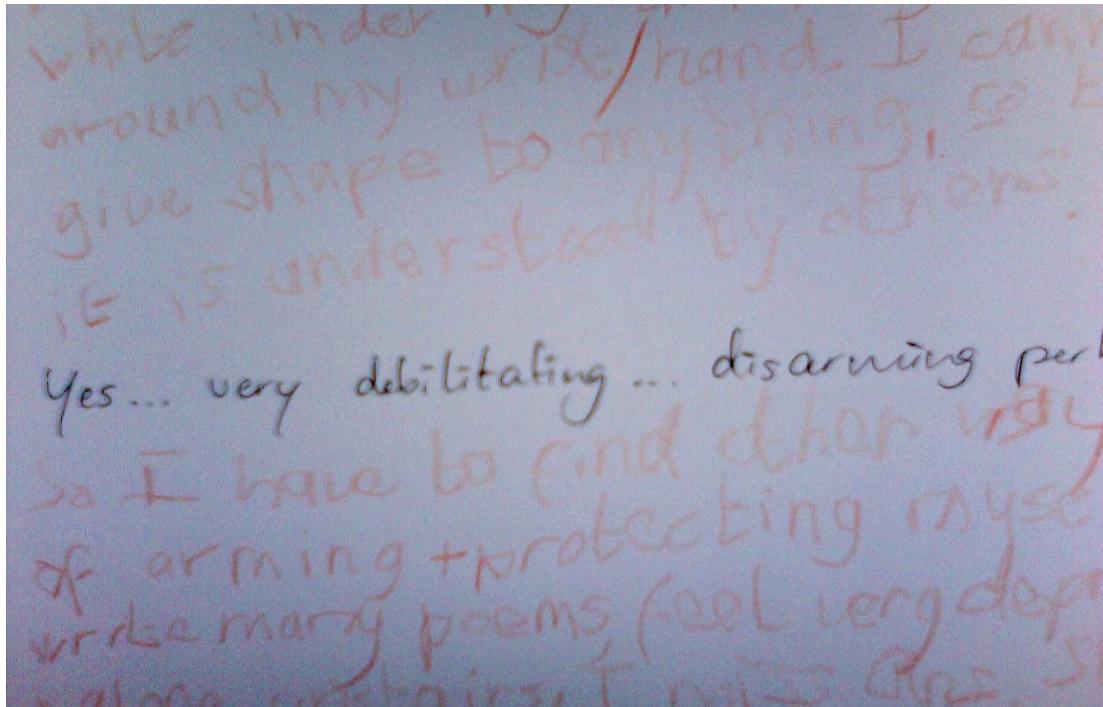 white under my
around my wrist/hand. I can
give shape to anything, so t
it is understood by others.
Yes... very debilitating... disarming per
So I have to find other way
of arming + protecting myse
write many poems, feel very dep
alone upstairs, I miss